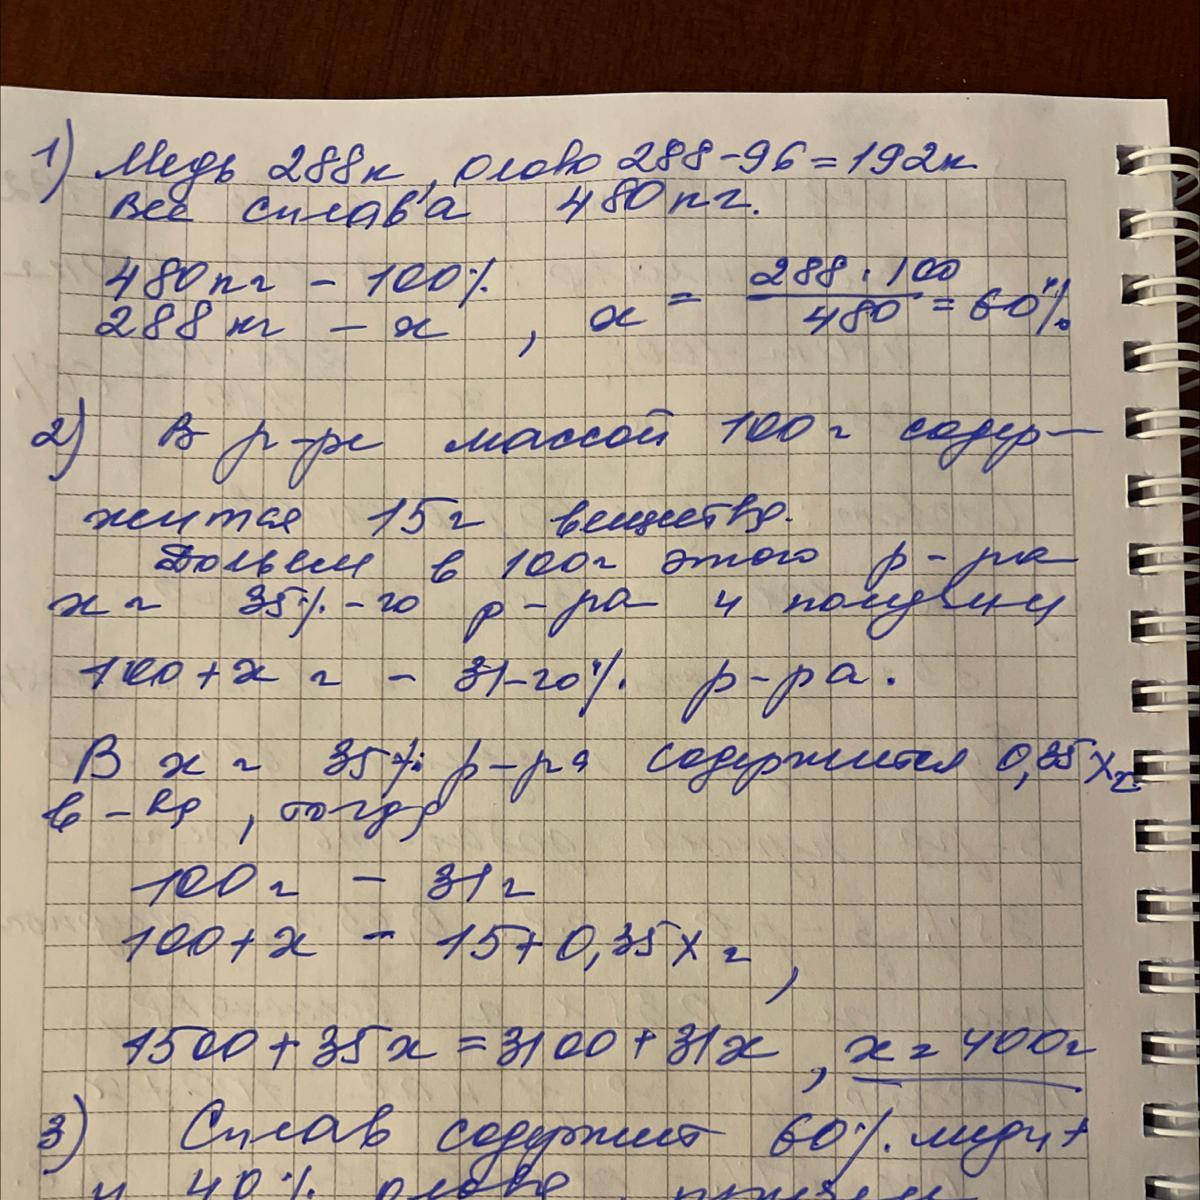 1) Медь 288к, олово 288-96=192к
Все сплава 480кг.
480кг - 100%
288кг - x , x = 288·100/480 = 60%
2) В р-ре массой 100г содер-
жится 15г вещества.
Дольем в 100г этого р-ра
x г 35%-го р-ра и получим
100+x г - 31-го% р-ра.
В x г 35% р-ра содержится 0,35x г
в-ва, тогда
100г - 31г
100+x - 15+0,35x г ,
1500+35x=3100+31x , x=400г
3) Сплав содержит 60% меди
и 40% олова